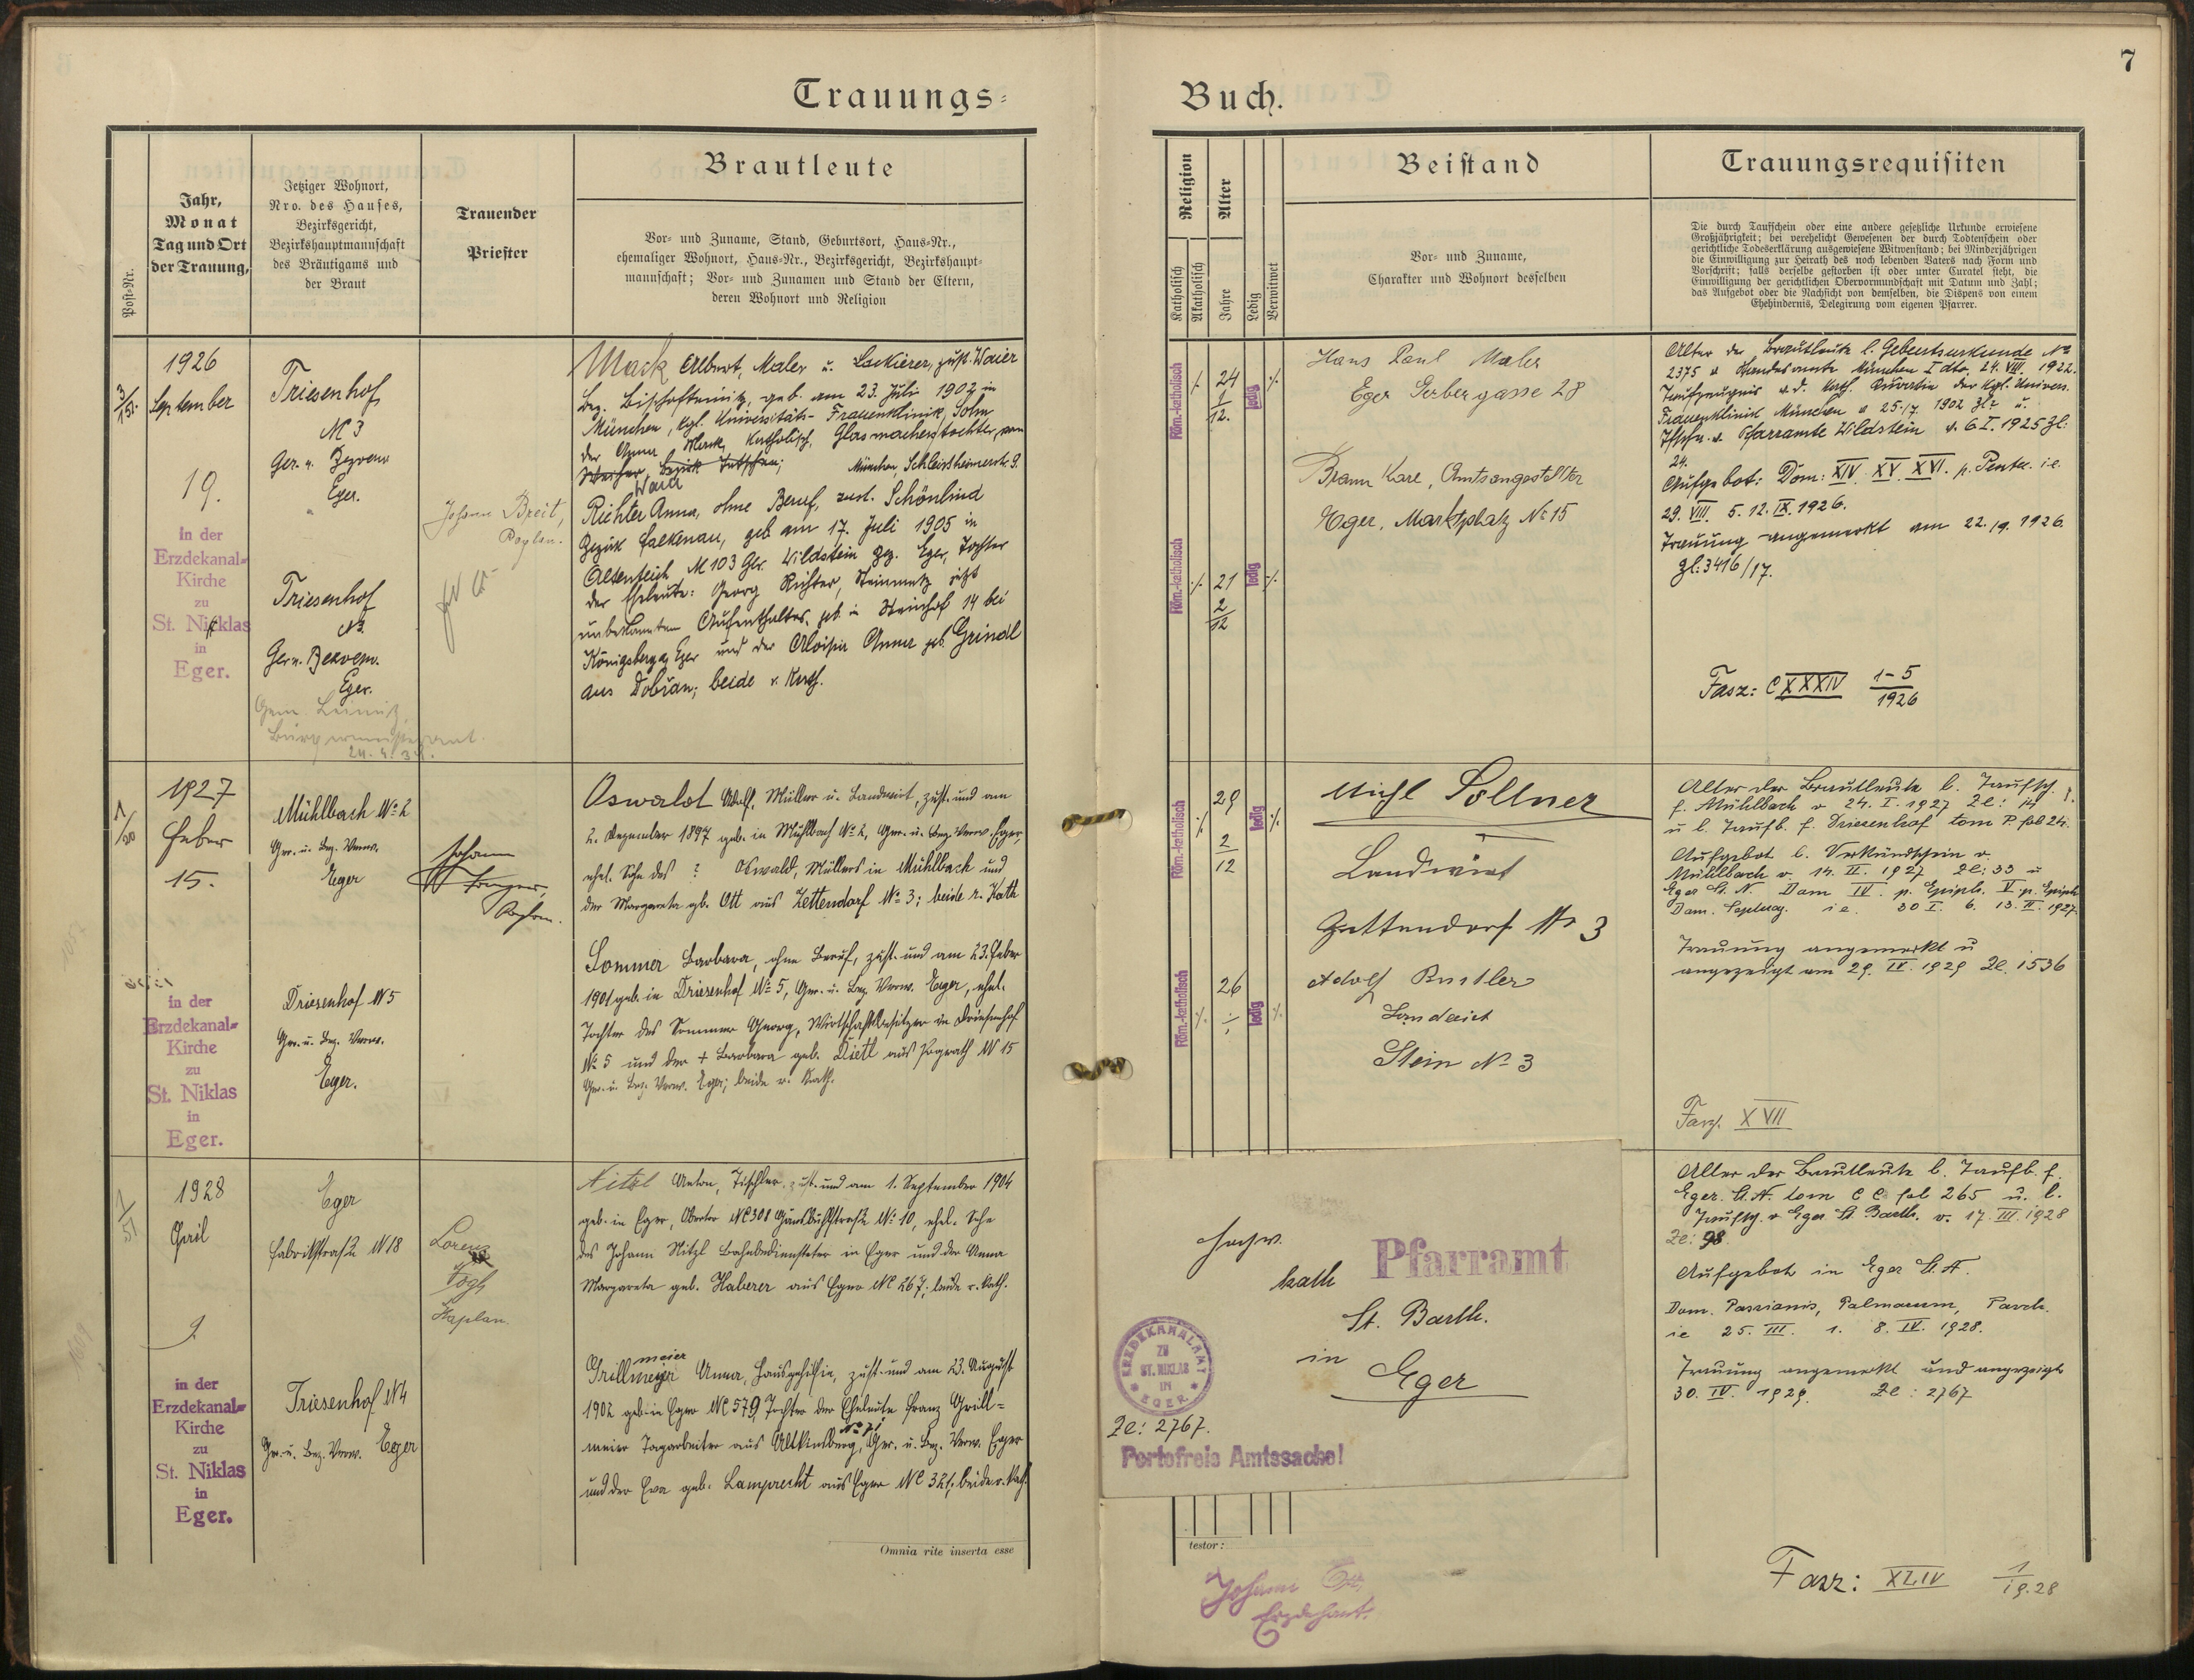 7
Trauungs=
Buch.
Post-Nr.
Jahr,
Monat
Tag und Ort
der Trauung,
Jetziger Wohnort,
Nro. des Hauses,
Bezirksgericht,
Bezirkshauptmannschaft
des Bräutigams und
der Braut
Trauender
Priester
Brautleute
Vor- und Zuname, Stand, Geburtsort, Haus-Nr.,
ehemaliger Wohnort, Haus-Nr., Bezirksgericht, Bezirkshaupt-
mannschaft; Vor- und Zunamen und Stand der Eltern,
deren Wohnort und Religion
Religion
Katholisch
Akatholisch
Alter
Jahre
Ledig
Verwitwet
Beistand
Vor- und Zuname,
Charakter und Wohnort desselben
Trauungsrequisiten
Die durch Taufschein oder eine andere gesetzliche Urkunde erwiesene
Großjährigkeit; bei verehelicht Gewesenen der durch Todtenschein oder
gerichtliche Todeserklärung ausgewiesene Witwenstand; bei Minderjährigen
die Einwilligung zur Heirath des noch lebenden Vaters nach Form und
Vorschrift; falls derselbe gestorben ist oder unter Curatel steht, die
Einwilligung der gerichtlichen Obervormundschaft mit Datum und Zahl;
das Aufgebot oder die Nachsicht von demselben, die Dispens von einem
Ehehindernis, Delegirung vom eigenen Pfarrer.
1926
September
19.
in der
Erzdekanal=
Kirche
zu
St. Nicklas
in
Eger.
Triesenhof
N 3
Ger. u. Bezverw
Eger.
Triesenhof
N3.
Ger u. Bezverw.
Eger.
Johann Breit,
Kaplan.
Mask Albert, Maler u. Lackierer, zust. Waier
Bez. Bischofteinitz, geb. am 23. Juli 1902 in
München, kgl. Universitäts-Frauenklinik, Sohn
der Anna Mask, katholisch, Glasmacherstochter von
Waier
München, Schleissheimerstr. 9.
Richter Anna, ohne Beruf, zust. Schönlind
Bezirk Falkenau, geb am 17. Juli 1905 in
Altenteich N 103 Ger. Wildstein Bez. Eger, Tochter
der Eheleute: Georg Richter, Steinmetz jetzt
unbekannten Aufenthaltes, geb in Steinhof 14 bei
Königsberg a Eger und der Aloisia Anna geb. Grindl
aus Dobrau; beide r. Kath.
Röm.-katholisch
24
1
12.
ledig
Röm.-katholisch
21
2
12
ledig
Hans Paul Maler
Eger Gerbergasse 28
Braun Karl, Amtsangestellter
Eger, Marktplatz No 15
Alter der Brautleute l. Geburtsurkunde No
2375 d Standesamte München I dto. 24. VIII. 1922.
Taufzeugnis v. d. kath. Kuratie der Kgl. Univers.
Frauenklinik München v 25./7 1902 Zl= u.
Tfsch. v. Pfarramte Wildstein v. 6 I. 1925 Zl:
24.
Aufgebot: Dom: XIV. XV. XVI. p. Pente. i.e.
29. VIII. 5. 12. IX. 1926.
Trauung angemerkt am 22./9. 1926.
Zl: 3416/17.
Fasz: CXXXIV 1-5
1926
1927
Feber
15.
in der
Erzdekanal=
Kirche
zu
St. Niklas
in
Eger.
Mühlbach No 2
Ger. u. Bez. Verw.
Eger
Driesenhof N 5
Ger. u. Bez. Verw.
Eger.
Johann
Oswald Adolf, Müller u. Landwirt, zust. und am
2. Dezember 1897 geb. in Mühlbach No 2, Ger. u. Bez. Verw. Eger,
ehel. Sohn des ? Oswald, Müllers in Mühlbach und
der Margareta gb. Ott aus Zettendorf No 3; beide r. Kath
Sommer Barbara, ohne Beruf, zust. und am 23. Feber
1901 geb. in Driesenhof No 5, Ger. u. Bez. Verw. Eger, ehel.
Tochter des Sommer Georg, Wirtschaftsbesitzer in Driesenhof
No 5 und der + Barbara geb. Dietl aus Pograth N 15
Ger. u. Bez. Verw. Eger; beide r. Kath.
Röm.-katholisch
29
2
12
ledig
Röm.-katholisch
26
ledig
Michl Sollner
Landwirt
Zettendorf No 3
Adolf
Landwirt
Stein No 3
Alter der Brautleute l. Taufsch.
f. Mühlbach v 24. I. 1927 Zl: 14
u l. Taufb. f. Driesenhof tom P. fol 24.
Aufgebot l. Verkündschein v.
Mühlbach v. 14. II. 1927 Zl: 33 u
Eger St. N. Dom IV. p. Epiph. V. p. Epiph
Dom. Septuag. i e. 30 I. 6. 13. II. 1927.
Trauung angemerkt u
angezeigt am 29. IV. 1929 Zl. 1536
Fasz. XVII
1928
April
9.
in der
Erzdekanal=
Kirche
zu
St. Niklas
in
Eger.
Eger
Fabrikstraße N 18
Triesenhof N4
Ger. u. Bez. Verw. Eger
Lorenz
Vogl
Kaplan.
Nitzl Anton, Tischler, zust. und am 1. September 1904
geb. in Eger, Obertor NC 308 Gänsbühlstraße No 10, ehel. Sohn
des Johann Nitzl Bahnbediensteter in Eger und der Anna
Margareta geb. Haberer aus Eger NC 267; beide r. Kath.
meier
Grillmeyer Anna, Hausgehilfin, zust. und am 23. August
1902 geb. in Eger NC 579, Tochter der Eheleute Franz Grill=
meier Tagarbeiter aus Altkinsberg, Ger. u. Bez. Verw. Eger
und der Eva geb. Lamprecht aus Eger NC 321; beide r. Kath.
Hochw.
kath Pfarramt
St. Barth.
in
Eger
ERZDEKANALAMT
ZU
ST. NIKLAS
IN
EGER
Zl: 2767.
Portofreie Amtssache!
Alter der Brautleute l. Taufb. f.
Eger. St. N. tom C C fol 265 u. l.
Taufsch. v Eger St. Barth. v. 17. III. 1928
Zl: 98.
Aufgebot in Eger St. N.
Dom. Passionis, Palmarum, Pasch.
ie 25. III. 1. 8. IV. 1928.
Trauung angemerkt und angezeigt
30. IV. 1929. Zl: 2767
Omnia rite inserta esse
testor:
Johann
Erzdechant.
Fasz: XLIV 1
19.28